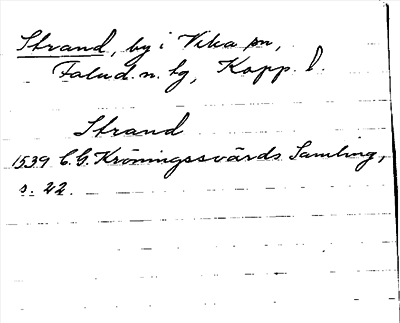 Strand, by i Vika sn,
Falud. n. tg, Kopp. l.
Strand
1539 C.G. Kröningssvärds Samling,
s. 22.